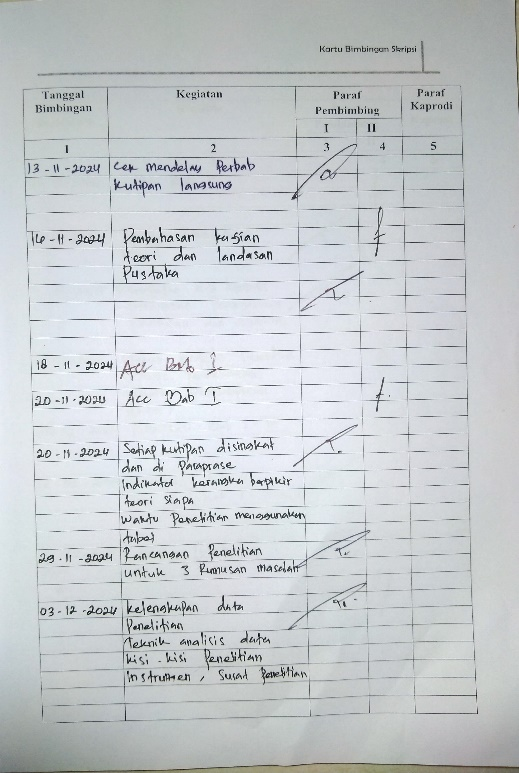 Kartu Bimbingan Skripsi
Tanggal Bimbingan Kegiatan Paraf Pembimbing Paraf Kaprodi
I II
1 2 3 4 5
13 - 11 - 2024 cek mendelay Perbab
kutipan langsung
14 - 11 - 2024 Pembahasan kajian
teori dan landasan
Pustaka
18 - 11 - 2024 Acc Bab I
20 - 11 - 2024 Acc Bab I
20 - 11 - 2024 Setiap kutipan disingkat
dan di Paraprase
Indikator kerangka berpikir
teori siapa
waktu Penelitian menggunakan
tabel
29 - 11 - 2024 Rancangan Penelitian
untuk 3 Rumusan masalah
03 - 12 - 2024 kelengkapan data
Penelitian
Teknik analisis data
kisi - kisi Penelitian
Instrumen , Surat Penelitian